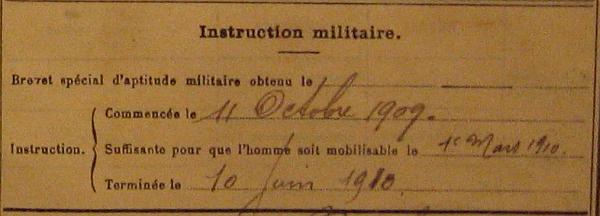 Instruction militaire.
Brevet spécial d'aptitude militaire obtenu le
Commencée le 11 Octobre 1909.
Instruction. Suffisante pour que l'homme soit mobilisable le 1er Mars 1910.
Terminée le 10 Juin 1910.